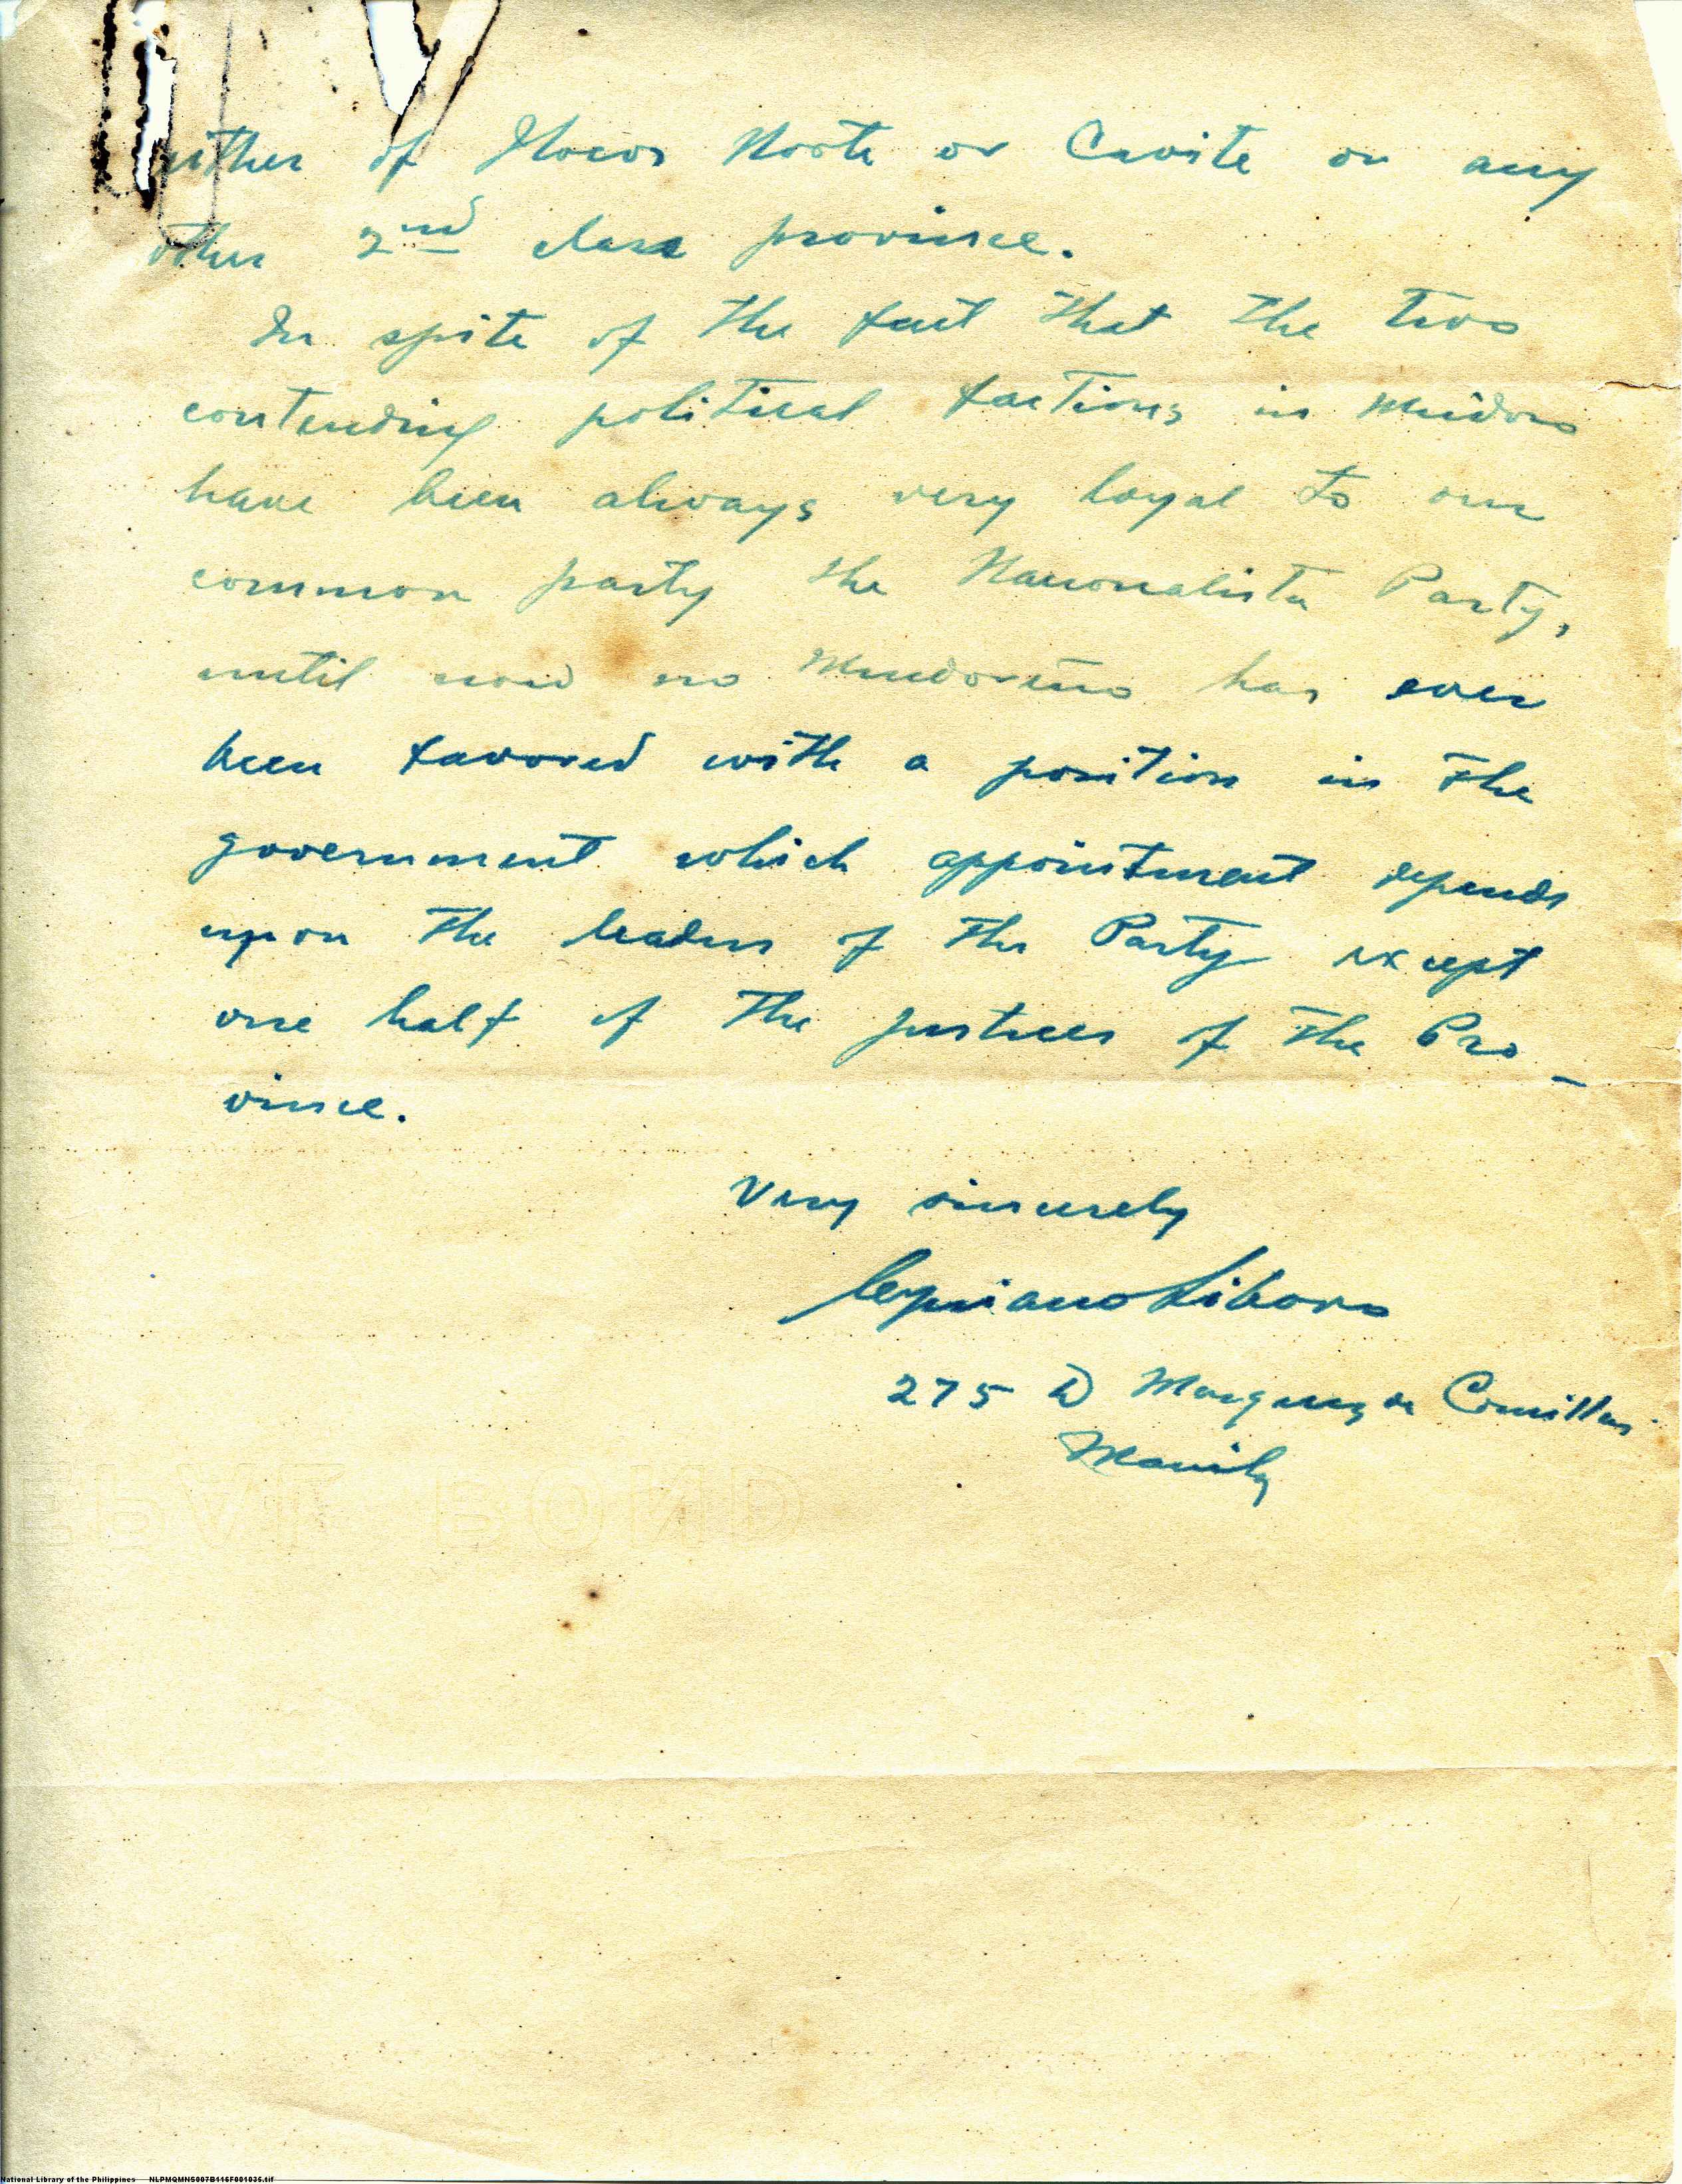 either of Ilocos Norte or Cavite or any
other 2nd class province.
In spite of the fact that the two
contending political factions in Mindoro
have been always very loyal to our
common party the Nacionalista Party,
until now no Mindoreño has ever
been favored with a position in the
government which appointment depends
upon the leaders of the Party except
one half of the justices of the Pro-
vince.
Very sincerely
Cypriano Liboro
275 D Marquez de Comillas
Manila
BOND
National Library of the Philippines NLPMQMNS007B116F001035.tif